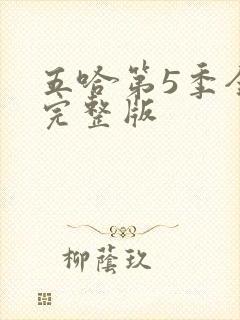 五哈第5季全
完整版
柳蔭玖